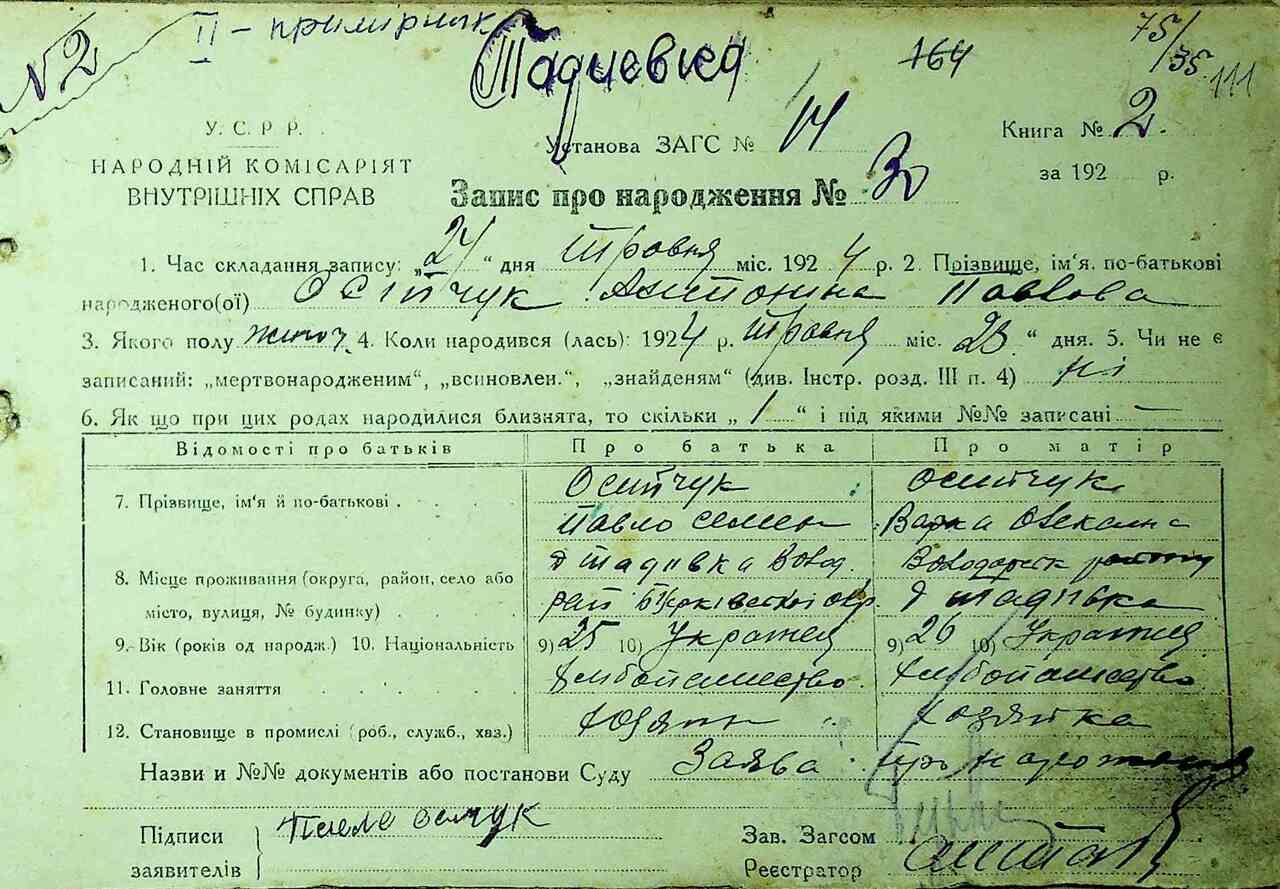 №2
II – примірник
Тадиевка
164
75/35
111
У. С. Р. Р.
Установа ЗАГС № 14
Книга № 2.
НАРОДНІЙ КОМІСАРІЯТ
за 192 р.
ВНУТРІШНІХ СПРАВ
Запис про народження № 30
1. Час складання запису: „24“ дня Травня міс. 1924 р. 2. Прізвище, ім‘я, по-батькові
народженого(ої) Осіпчук Антонина Павлова
3. Якого полу жіноч. 4. Коли народився (лась): 1924 р. Травня міс. 23 “ дня. 5. Чи не є
записаний: „мертвонародженим“, „всиновлен.“, „знайденям“ (див. Інстр. розд. III п. 4) ні
6. Як що при цих родах народилися близнята, то скільки „ 1 “ і під якими №№ записані —
Відомості про батьків Про батька Про матір
7. Прізвище, ім‘я й по-батькові . Осипчук Осипчук
Павло Семен Варка
8. Місце проживання (округа, район, село або с Тадіівка Волод. Володарськ району
місто, вулиця, № будинку) . рай Б Церківської окр с Тадіівка
9. Вік (років од народж.) 10. Національність 9) 25 10) Українец 9) 26 10) Українец
11. Головне заняття хлібопашество хлібопашество
12. Становище в промислі (роб., служб., хаз.) Хозяин Хозяйка
Назви и №№ документів або постанови Суду Заява про народження
Підписи
заявителів
Зав. Загсом
Реєстратор